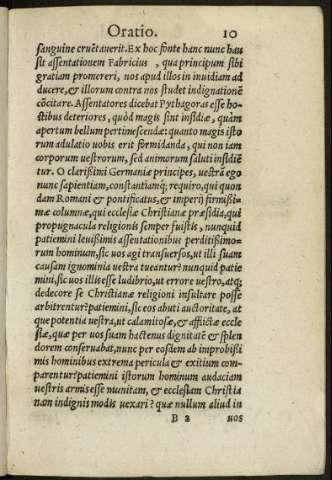 Oratio. 10
sanguine cruẽtauerit. Ex hoc fonte hanc nunc hau
sit assentationem Fabricius, qua principum sibi
gratiam promereri, nos apud illos in inuidiam ad
ducere, & illorum contra nos studet indignationẽ
cõcitare. Assentatores dicebat Pythagoras esse ho-
stibus deteriores, quòd magis sint insidiæ, quàm
apertum bellum pertimescendæ: quanto magis isto
rum adulatio uobis erit formidanda, qui non iam
corporum uestrorum, sed animorum saluti insidiẽ
tur. O clarissimi Germaniæ principes, uestrã ego
nunc sapientiam, constantiamq; requiro, qui quon
dam Romani & pontificatus, & imperij firmissi-
mæ columnæ, qui ecclesiæ Christianæ præsidia, qui
propugnacula religionis semper fuistis, nunquid
patiemini leuissimis assentationibus perditissimo-
rum hominum, sic uos agi transuersos, ut illi suam
causam ignominia uestra tueantur? nunquid patie
mini, sic uos illis esse ludibrio, ut errore uestro, atq;
dedecore se Christianæ religioni insultare posse
arbitrentur? patiemini, sic eos abuti auctoritate, at
que potentia uestra, ut calamitosæ, & afflictæ eccle
siæ, quæ per uos suam hactenus dignitatẽ & splen
dorem conseruabat, nunc per eosdem ab improbissi
mis hominibus extrema pericula & exitium com-
parentur? patiemini istorum hominum audaciam
uestris armis esse munitam, & ecclesiam Christia
nam indignis modis uexari? quæ nullum aliud in
B 2 uos